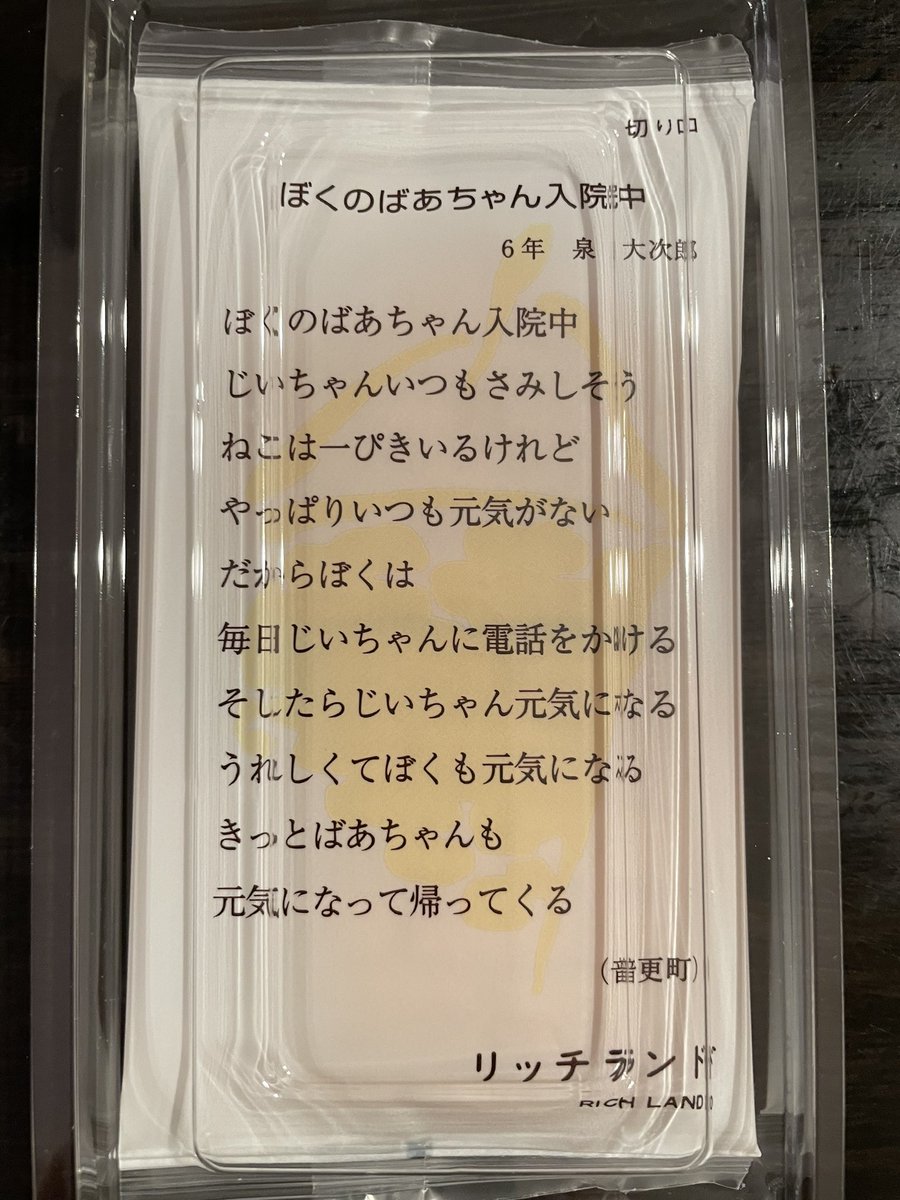 切り口
ぼくのばあちゃん入院中
6年 泉 大次郎
ぼくのばあちゃん入院中
じいちゃんいつもさみしそう
ねこは一ぴきいるけれど
やっぱりいつも元気がない
だからぼくは
毎日じいちゃんに電話をかける
そしたらじいちゃん元気になる
うれしくてぼくも元気になる
きっとばあちゃんも
元気になって帰ってくる
(音更町)
リッチランド
RICH LAND